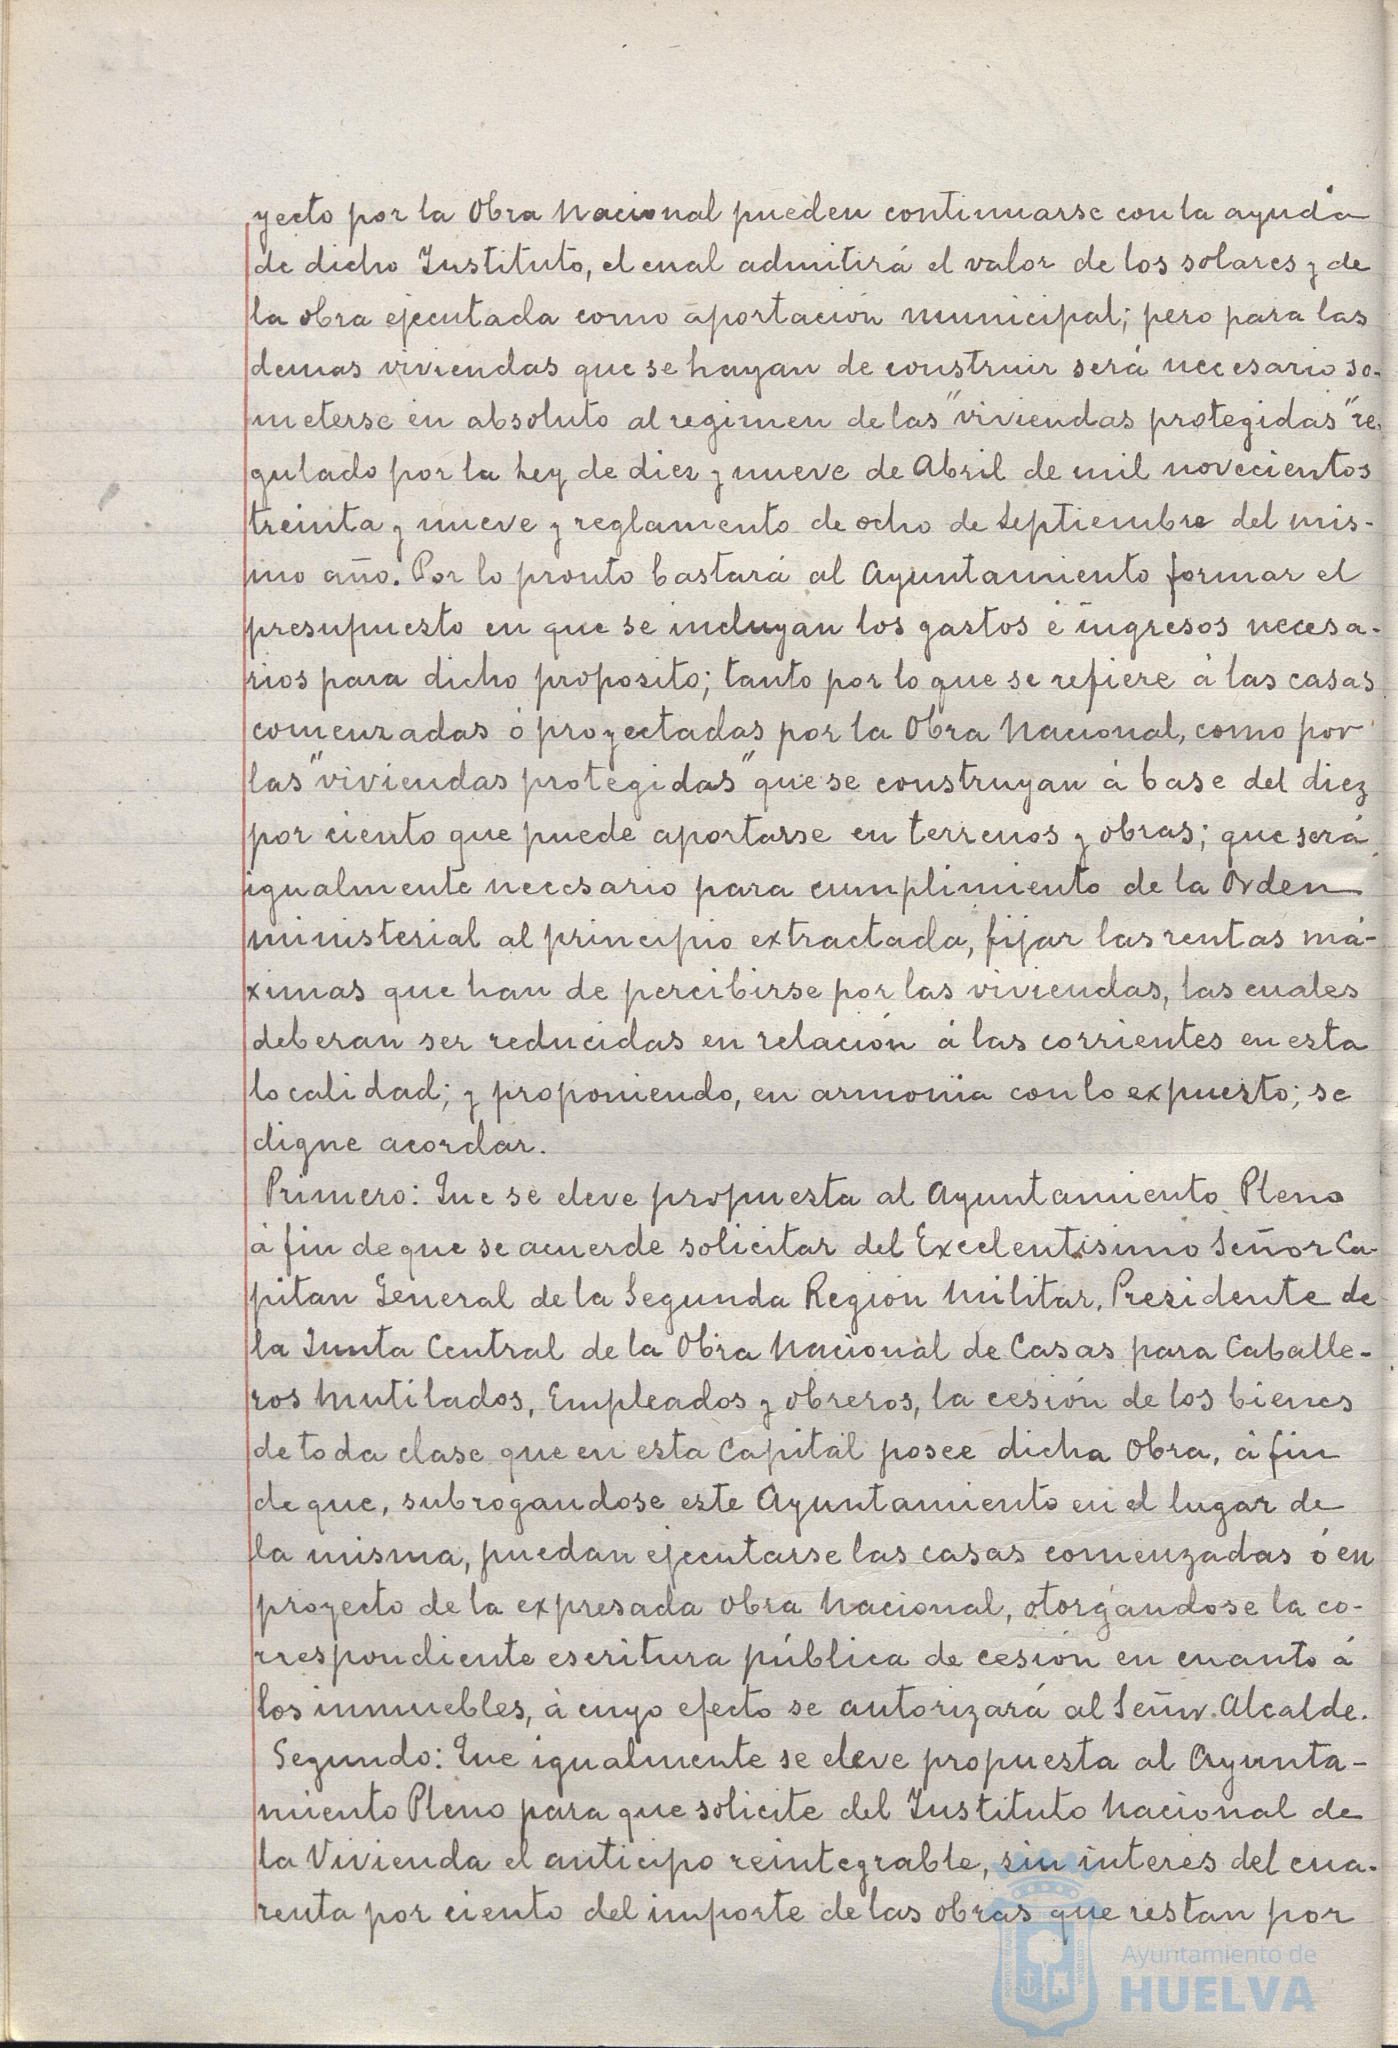 yecto por la Obra Nacional pueden continuarse con la ayuda
de dicho Instituto, el cual admitirá el valor de los solares y de
la obra ejecutada como aportación municipal; pero para las
demas viviendas que se hayan de construir será necesario so-
meterse en absoluto al regimen de las "viviendas protegidas" re-
gulado por la Ley de diez y nueve de Abril de mil novecientos
treinta y nueve y reglamento de ocho de Septiembre del mis-
mo año. Por lo pronto bastará al Ayuntamiento formar el
presupuesto en que se incluyan los gastos é ingresos necesa-
rios para dicho proposito; tanto por lo que se refiere á las casas
comenzadas ó proyectadas por la Obra Nacional, como por
las "viviendas protegidas" que se construyan á base del diez
por ciento que puede aportarse en terrenos y obras; que será
igualmente necesario para cumplimiento de la Orden
ministerial al principio extractada, fijar las rentas má-
ximas que han de percibirse por las viviendas, las cuales
deberan ser reducidas en relación á las corrientes en esta
localidad; y proponiendo, en armonia con lo expuesto; se
digne acordar.
Primero: Que se eleve propuesta al Ayuntamiento Pleno
á fin de que se acuerde solicitar del Excelentisimo Señor Ca-
pitan General de la Segunda Región Militar, Presidente de
la Junta Central de la Obra Nacional de Casas para Caballe-
ros Mutilados, Empleados y Obreros, la cesión de los bienes
de toda clase que en esta Capital posee dicha Obra, á fin
de que, subrogandose este Ayuntamiento en el lugar de
la misma, puedan ejecutarse las casas comenzadas ó en
proyecto de la expresada Obra Nacional, otorgándose la co-
rrespondiente escritura pública de cesión en cuanto á
los inmuebles, á cuyo efecto se autorizará al Señor Alcalde.
Segundo: Que igualmente se eleve propuesta al Ayunta-
miento Pleno para que solicite del Instituto Nacional de
la Vivienda el anticipo reintegrable, sin interés del cua-
renta por ciento del importe de las obras que restan por
Ayuntamiento de
HUELVA